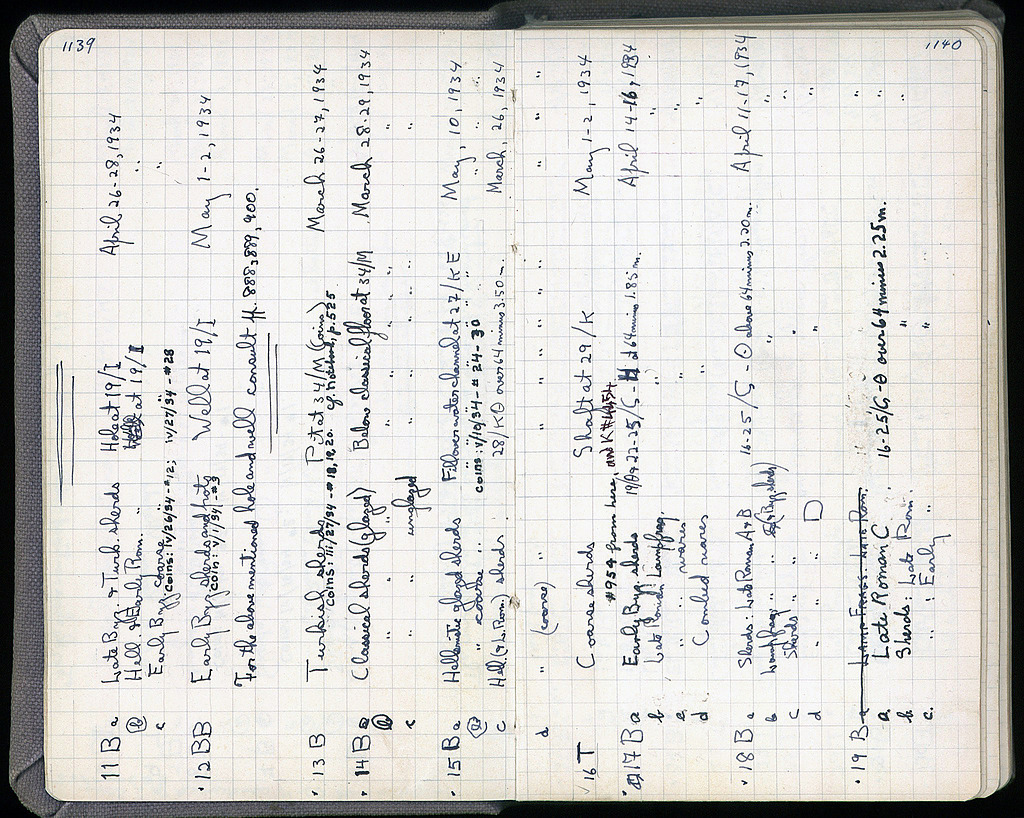 1139
11 B a Late Byz. & Turk. sherds Hole at 19/I April 26-28, 1934
b Hell & Early Rom. " at 19/I "
c Early Byz coarse "
coins: iv/26/34-#12; iv/27/34-#28
12 BB Early Byz sherds and pots Well at 19/I May 1-2, 1934
coin: v/1/34-#3
For the above mentioned hole and well consult pp. 888, 889, 900.
13 B Turkish sherds Pit at 34/M (coins) March 26-27, 1934
coins: iii/27/34-#18, 19, 20. cf. notebook, p. 525
14 B a Classical sherds (glazed) Below classical floor at 34/M March 28-29, 1934
b " " " " " " "
c unglazed " " " "
15 B a Hellenistic glazed sherds Fill over water channel at 27/KE May, 10, 1934
b " coarse " " "
coins: v/10/34-#24-30
c Hell. (& L. Rom.) sherds 28/KΘ over 64 minus 3.50 m. March, 26, 1934
1140
d " (coarse) " " " " " " "
16 T Coarse sherds Shaft at 29/K May 1-2, 1934
#954 from here, and K#
17 B a Early Byz. sherds 22-25/ 64 minus 1.85 m. April 14-16, 1934
b Late Roman Lamp frag. " "
c " " wares " "
d Combed wares " "
18 B a Sherds: Late Roman A & B 16-25/ς-Θ above 64 minus 2.20 m. April 11-17, 1934
b Lamp frag. " " (& Byz. sherds) " "
c Sherds " " " "
d " " D " "
19 B a Lamp Frags. Late Rom. "
a. Late Roman C 16-25/ς-Θ over 64 minus 2.25 m. "
b Sherds: Late Rom. " "
c. " : Early " "